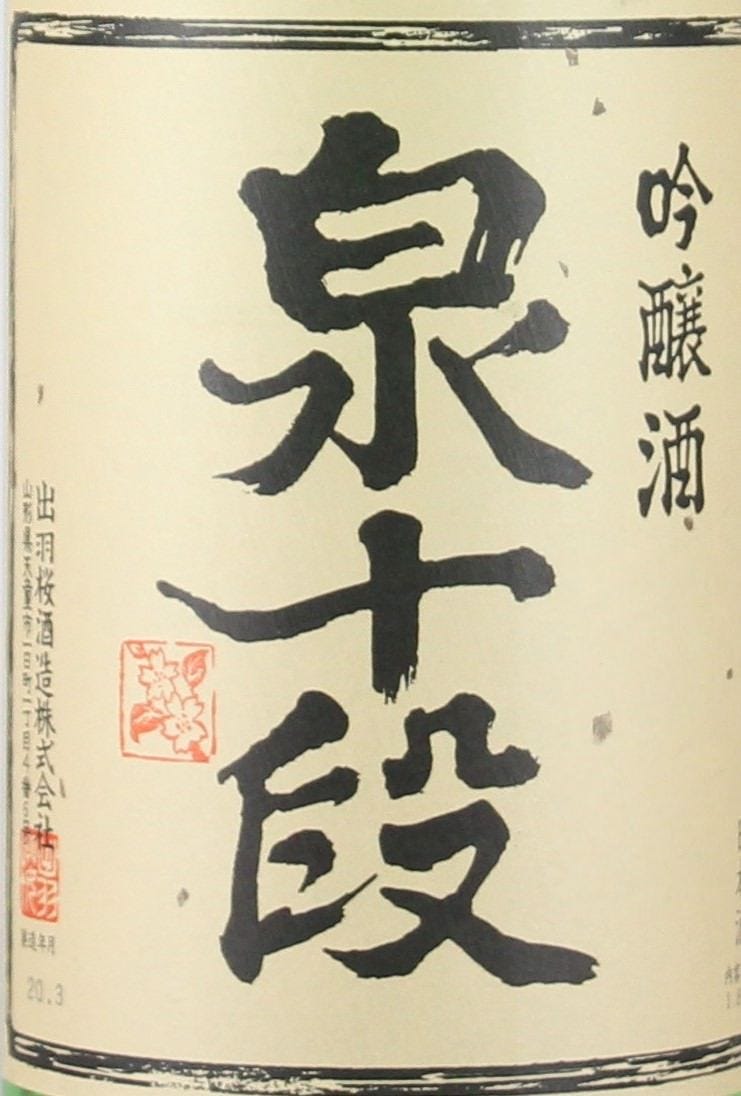 吟醸酒
泉十段
出羽桜酒造株式会社
山形県天童市一日町一丁目4番6号
製造年月
20.3